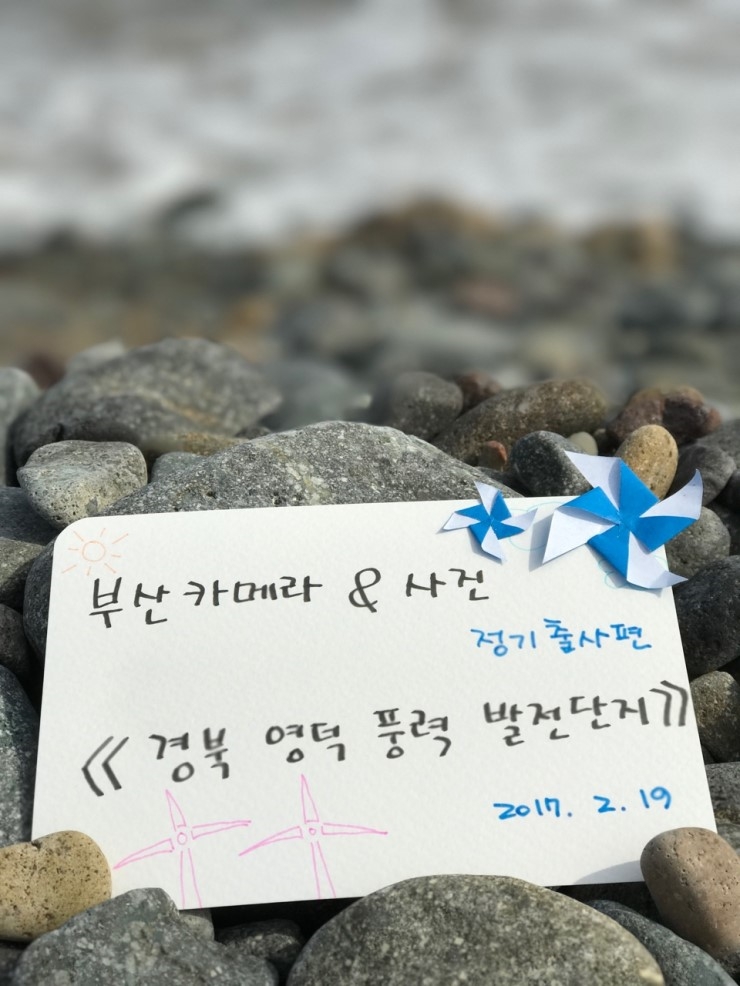 부산 카메라 & 사진
정기 출사편
《경북 영덕 풍력 발전단지》
2017. 2. 19